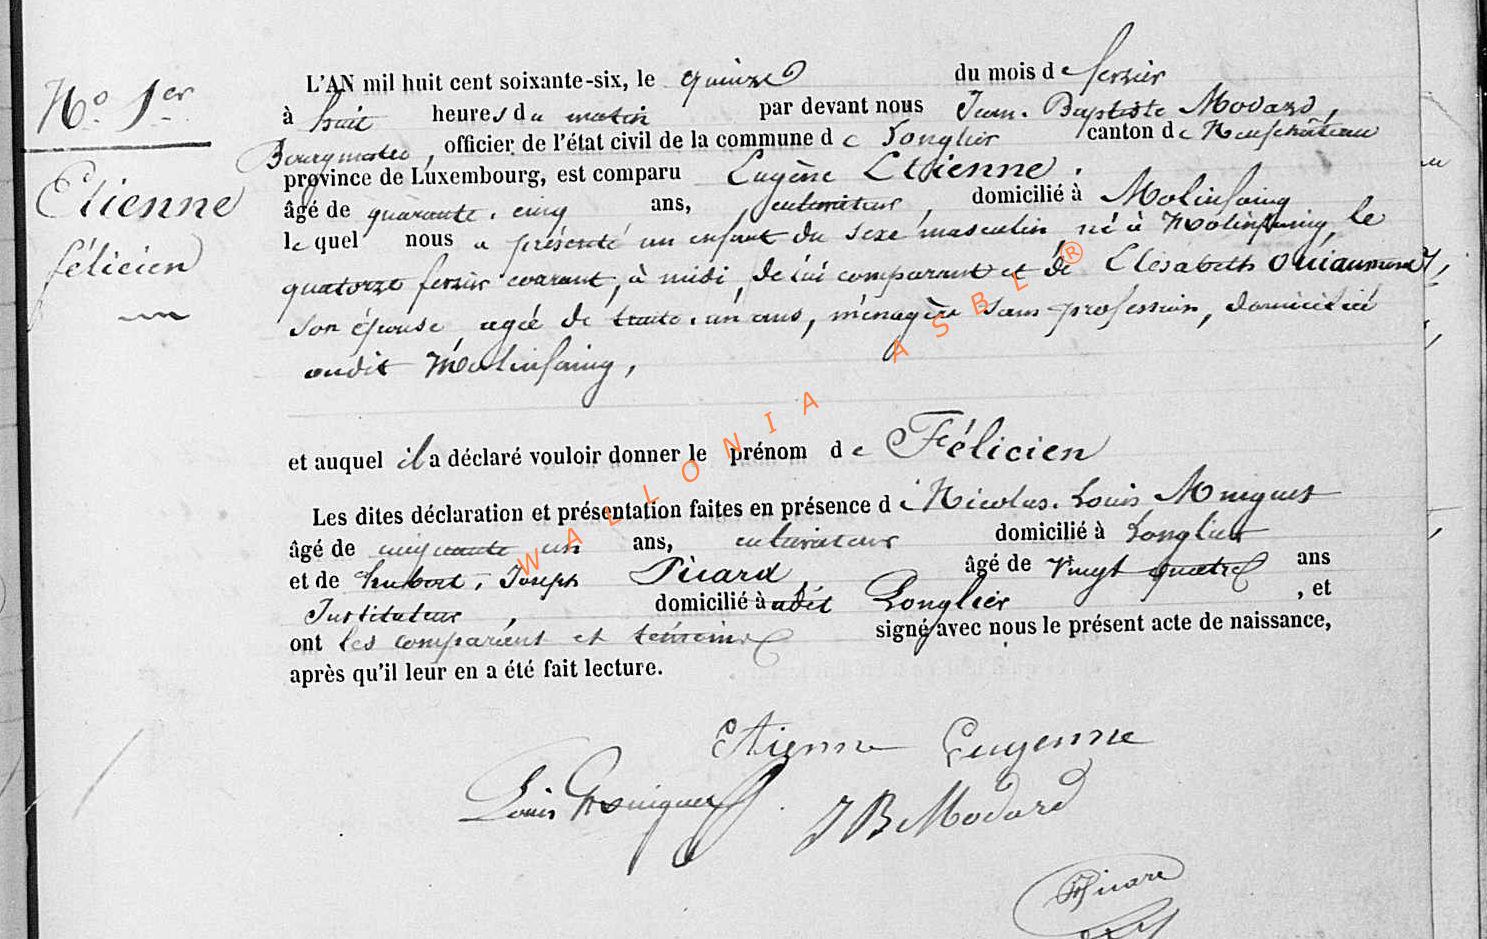 No. 1er
Etienne
félicien
L'AN mil huit cent soixante-six, le quinze du mois de fevrier
à huit heures du matin par devant nous Jean-Baptiste Modard,
Bourgmestre, officier de l'état civil de la commune de Longlier canton de Neufchâteau
province de Luxembourg, est comparu Eugène Etienne,
âgé de quarante-cinq ans, cultivateur, domicilié à Molinfaing
lequel nous a présenté un enfant du sexe masculin, né à Molinfaing, le
quatorze fevrier courant, à midi, de lui comparant et de Elisabeth
son épouse agée de trente-un ans, ménagère sans profession, domiciliée
audit Molinfaing,
et auquel il a déclaré vouloir donner le prénom de Félicien
Les dites déclaration et présentation faites en présence de Nicolas-Louis
âgé de cinquante un ans, cultivateur domicilié à Longlier
et de hubert-Joseph Picard, âgé de vingt quatre ans
Instituteur, domicilié à udit Longlier, et
ont les comparant et témoins signé avec nous le présent acte de naissance,
après qu'il leur en a été fait lecture.
Etienne Eugenne
Louis
J B Modard
Picard
WALLONIA ASBL ®